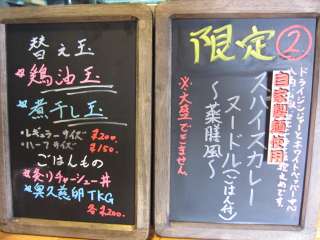 替え玉
鶏油玉
煮干し玉
・レギュラーサイズ ¥200.
・ハーフサイズ ¥150.
ごはんもの
炙りチャーシュー丼
奥久慈卵TKG
各¥200.
限定②
ドライジンジャーとホワイトペッパーで
自家製麺使用
スパイスカレー
ヌードル(ごはん付)
〜薬膳風〜
※大盛できません。